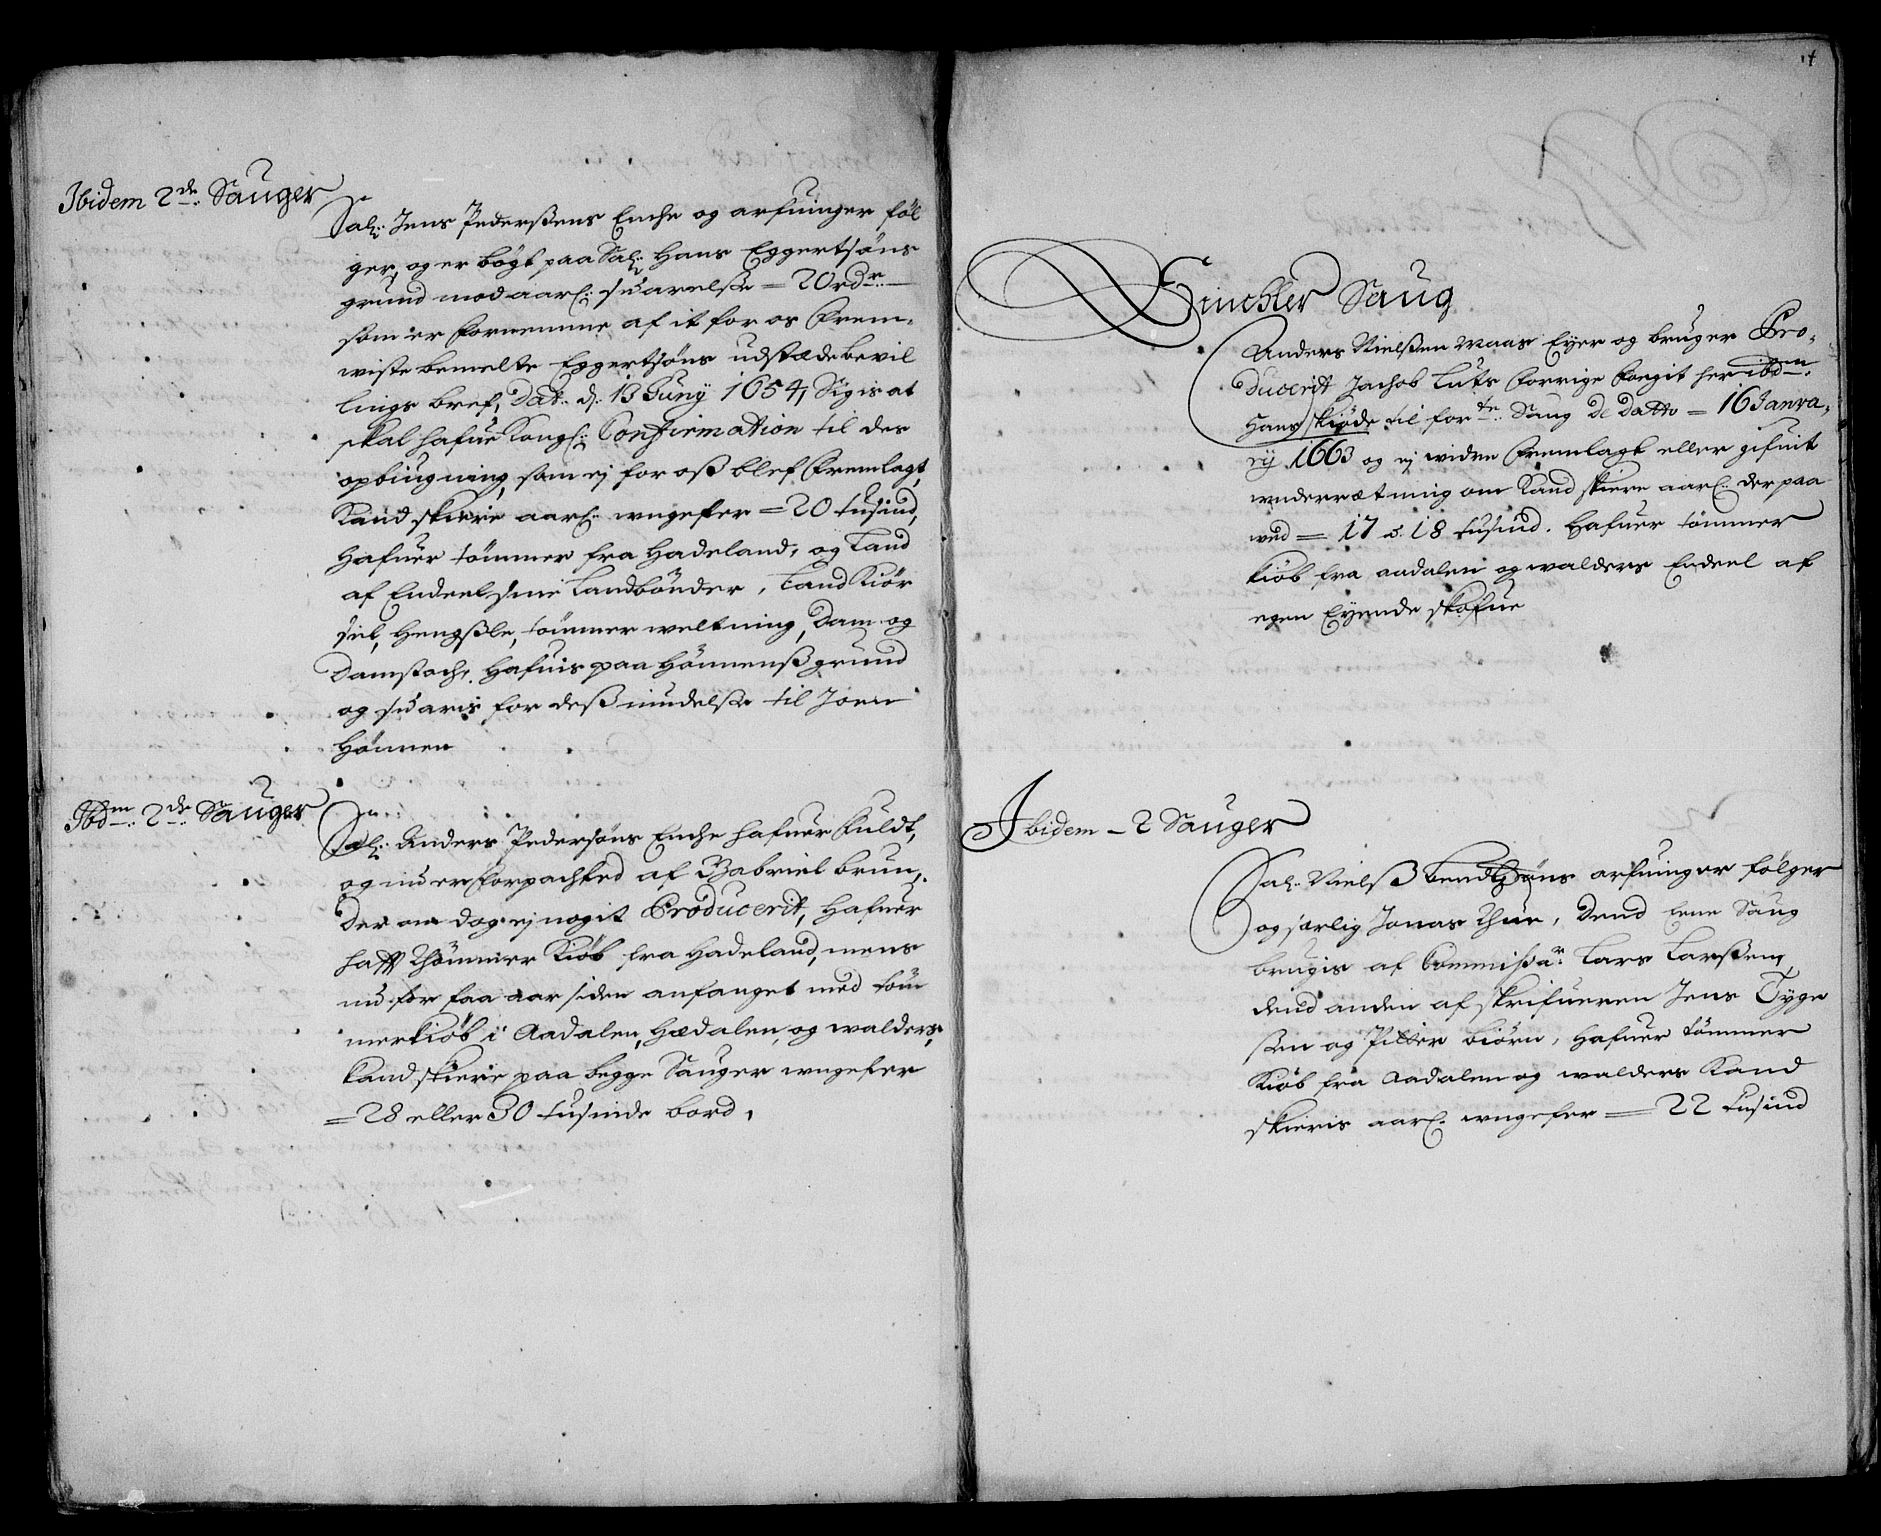 Ibidem 2de Sauger
Sal: Jens Pederßens Enche og arfuinger föl
ger, og er bögt paa Sal: Hans Eggertsöns
grund mod aarl: suarelse = 20 rdr
som er fornemme af it for os frem,
wiste bemelte Eggertsöns udstæde bevil
lings bref, Dat. d. 13 Junij 1654, Sigis at
skal hafue Kongl: Confirmation til des
opbiugning, som ej for oß blef fremlagt,
Kand skiere aarl: ungefer = 20 tusind,
Hafuer tömmer fra Hadeland, og Land
af Endeel sine Landbönder, Land Kiör
sel, Hengßle, tömmer weltning, Dam og
Damstoch, Hafuis paa Hönnenß grund
og suaris for deß nindelse til Joen
Hönnen
Ibdm 2de Sauger
Sal: Anders Pedersöns Enche hafuer fuldt,
og nu er forpachted af Gabriel brun,
Der om dog ej nogit Producerit, Hafuer
hafft Thömmer Kiöb fra Hadeland, mens
nu for faa aar siden anfanget med töm
merkiöb i Aadalen, Hædalen, og walders,
kand skiere paa begge Sauger ungefer
= 28 eller 30 tusinde bord,
14
Saug
Anders Nielßen Maas Eyer og bruger Pro,
ducerit Jachob Luts forrige foegit her ibdm
Hans skiöde til forne Saug De Datto = 16 Janva,
rij 1663 og ej widre fremlagt eller gifuit
underrætning om Kand skiere aarl: der paa
wed = 17 a 18 tusind. Hafuer tömmer
kiöb fra aadalen og walders Endeel af
egen Eyende skofue
Ibidem - 2 Sauger
Sal: Nielß Bendtßöns arfuinger fölger
og særlig Jonas Thue, Dend ene Saug
brugis af Commissar Lars Larßen,
dend anden af skrifueren Jens Tyge
sen og Pitter Biörn, Hafuer tömmer
Kiöb fra Aadalen og walders Kand
skieris aarl: ungefer = 22 tusind